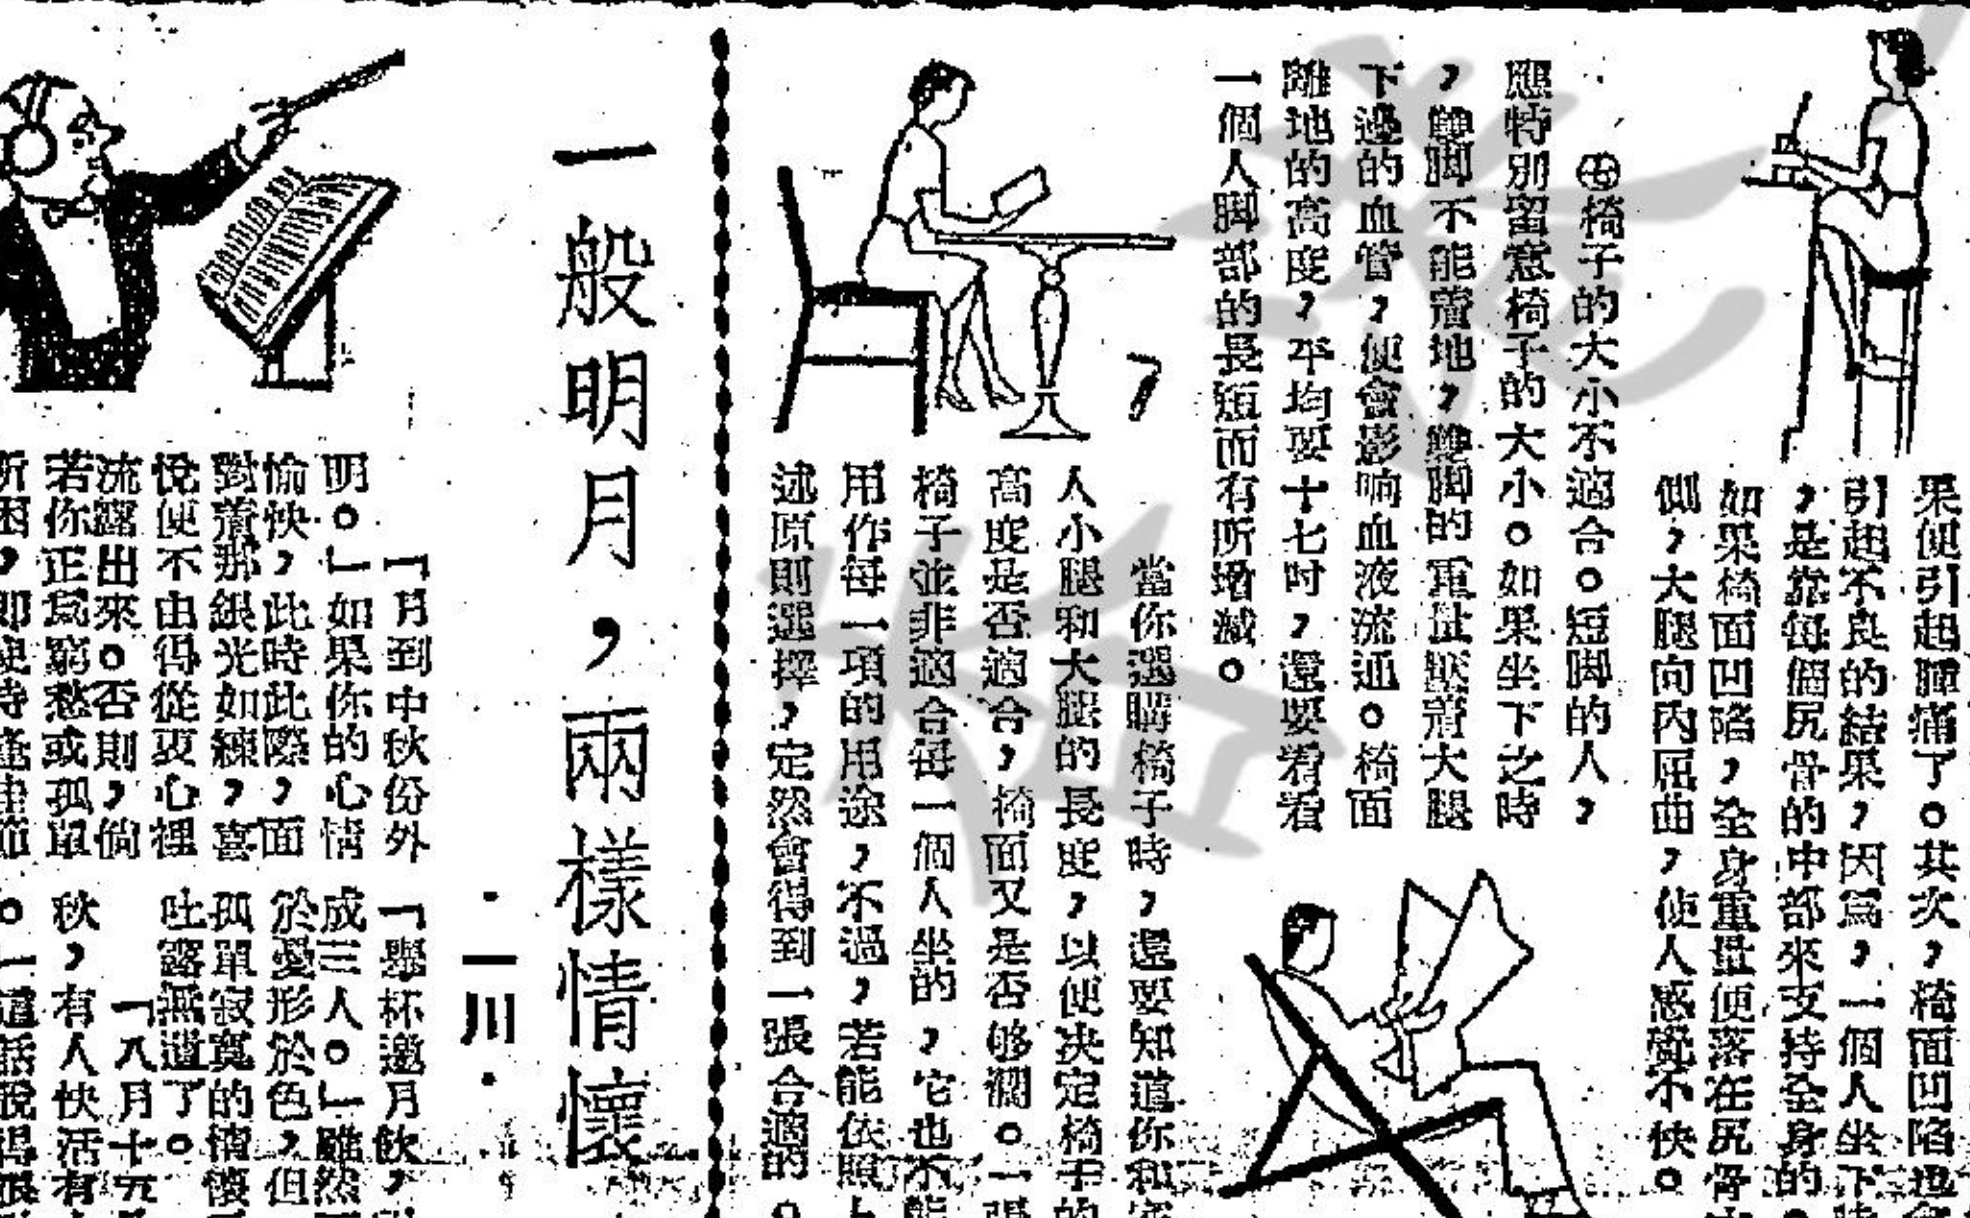 果便引起腫痛了。其次，椅面凹陷也會
引起不良的結果，因爲，一個人坐下
，是靠每個尻骨的中部來支持全身的
如果椅面凹陷，全身重量便落在尻骨
側，大腿向內屈曲，使人感覺不快。
㊆椅子的大小不適合。短脚的人，
應特別留意椅子的大小。如果坐下之時
，雙脚不能着地，雙脚的重量壓着大腿
下邊的血管，便會影响血液流通。椅面
離地的高度，平均要十七吋，還要看看
一個人脚部的長短而有所增減。
7
當你選購椅子時，還要知道你和家
人小腿和大腿的長度，以便决定椅子的
高度是否適合，椅面又是否够濶。一張
椅子並非適合每一個人坐的，它也不能
用作每一項的用途，不過，若能依照上
述原則選擇，定然會得到一張合適的。
一般明月，兩樣情懷
·一川·
「月到中秋份外
明。」如果你的心情
愉快，此時此際，面
對着那銀光如練，喜
悅便不由得從衷心裡
流露出來。否則，倘
若你正爲窮愁或孤單
所困，即使時逢佳節
「舉杯邀月飲，
成三人。」雖然
於愛形於色，但
孤單寂寞的情懷
吐露無遺了。
「八月十五
秋，有人快活有
。一這話說得